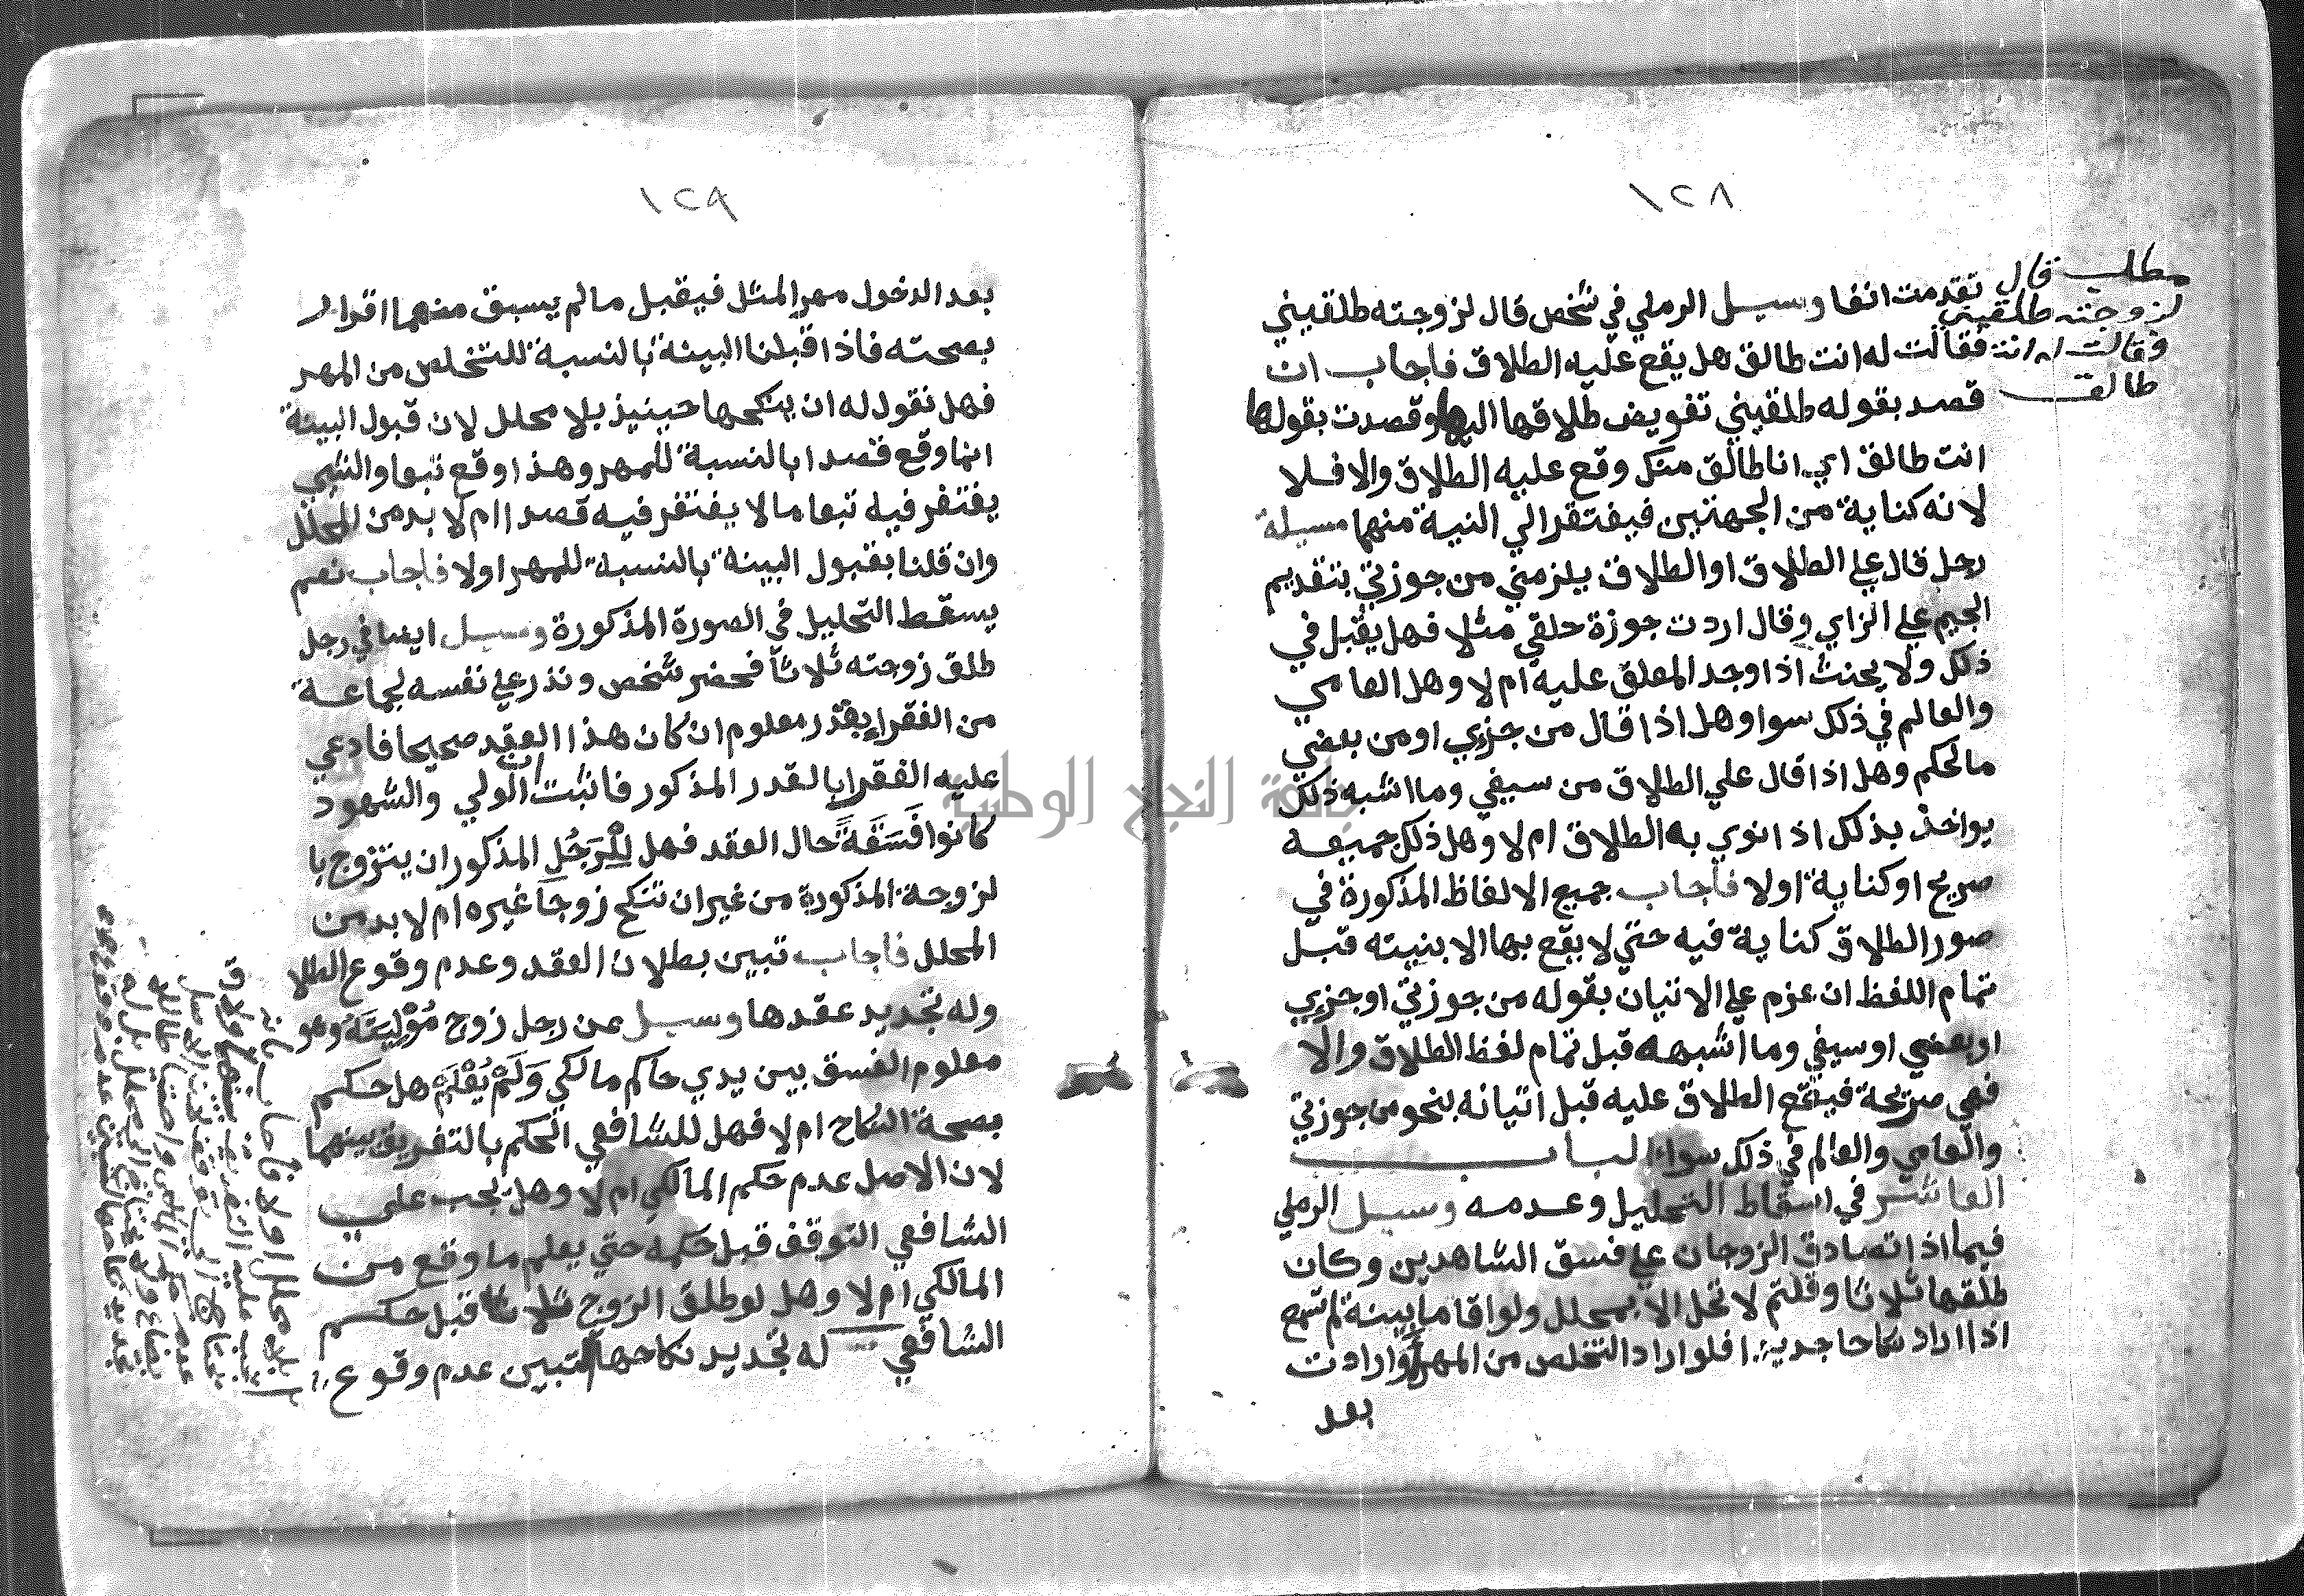 ١٢٨
مطلب قال
لزوجته طلقيني
وقالت له انت
طالق
تقدمت انفا وسيل الرملي في شخص قال لزوجته طلقيني
فقالت له انت طالق هل يقع عليه الطلاق فاجاب ان
قصد بقوله طلقيني تفويض طلاقها اليها وقصدت بقولها
انت طالق اي انا طالق منك وقع عليه الطلاق والا فلا
لانه كناية من الجهتين فيفتقر الي النية منهما مسيلة
رجل قال علي الطلاق او الطلاق يلزمني من جوزتي بتقديم
الجيم علي الزاي وقال اردت جوزة حلقي مثلا فهل يقبل في
ذلك ولا يحنث اذا وجد المعلق عليه ام لا وهل العامي
والعالم في ذلك سوا وهل اذا قال من جزي او من بعضي
مالحكم وهل اذا قال علي الطلاق من سيفي وما اشبه ذلك
يواخذ بذلك اذا نوي به الطلاق ام لا وهل ذلك جميعه
صريح او كناية او لا فاجاب جميع الالفاظ المذكورة في
صور الطلاق كناية فيه حتي لا يقع بها الا بنيته قبل
تمام اللفظ ان عزم علي الاتيان بقوله من جوزتي او جزي
او بعضي او سيفي وما اشبهه قبل تمام لفظ الطلاق والا
فهي صريحة فيقع الطلاق عليه قبل اتيانه بنحو من جوزتي
والعامي والعالم في ذلك سواء الباب
العاشر في اسقاط التحليل وعدمه وسيل الرملي
فيما اذا تصادق الزوجان علي فسق الشاهدين وكان
طلقها ثلاثا وقلتم لا تحل الا بمحلل ولو اقاما بينة لم تسمع
اذا اراد نكاحا جديدا فلو اراد التخلص من المهر او ارادت
بعد
١٢٩
بعد الدخول مهر المثل فيقبل مالم يسبق منهما اقرار
بصحته فاذا قبلنا البينة بالنسبة للتخلص من المهر
فهل نقول له ان ينكحها حينيذ بلا محلل لان قبول البينة
انما وقع قصدا بالنسبة للمهر وهذا وقع تبعا والشي
يغتفر فيه تبعا مالا يغتفر فيه قصدا ام لا بد من المحلل
وان قلنا بقبول البينة بالنسبة للمهر او لا فاجاب نعم
يسقط التحليل في الصورة المذكورة وسيل ايضا في رجل
طلق زوجته ثلاثا فحضر شخص ونذر علي نفسه لجماعة
من الفقراء بقدر معلوم ان كان هذا العقد صحيحا فادعي
عليه الفقرا بالقدر المذكور فاثبت ان الولي والشهود
كانوا فَسَقَةً حال العقد فهل لِلرَّجُلِ المذكور ان يتزوج با
لزوجة المذكورة من غير ان تنكح زوجا غيره ام لا بد من
المحلل فاجاب تبين بطلان العقد وعدم وقوع الطلا
وله تجديد عقدها وسيل عن رجل زوج مُوْلِيَتَهُ وهو
معلوم الفسق بين يدي حاكم مالكي وَلَمْ يُعْلَمْ هل حكم
بصحة النكاح ام لا فهل للشافعي الحكم بالتفريق بينهما
لان الاصل عدم حكم المالكي ام لا وهل يجب علي
الشافعي التوقف قبل حكمه حتي يعلم ما وقع من
المالكي ام لا وهل لو طلق الزوج ثلاثا قبل حكم
الشافعي له تجديد نكاحها لتبين عدم وقوع